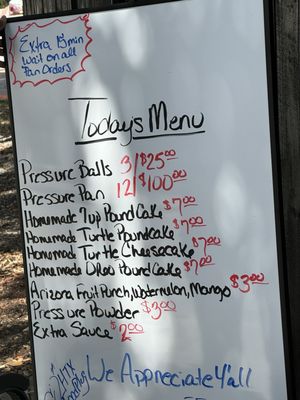 Extra 15min
wait on all
Pan Orders
Todays Menu
Pressure Balls 3/$25.00
Pressure Pan 12/$100.00
Homemade 7up Pound Cake $7.00
Homemade Turtle Poundcake $7.00
Homemade Turtle Cheesecake $7.00
Homemade Oreo Pound Cake $7.00
Arizona Fruit Punch, Watermelon, Mango $3.00
Pressure Powder $3.00
Extra Sauce $2.00
We Appreciate Y'all